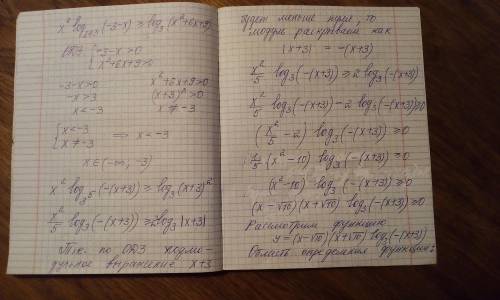 x² log₂₄₃(-3-x) ≥ log₃(x²+6x+9)
ОДЗ { -3-x>0
{ x²+6x+9>0
-3-x>0 x²+6x+9>0
-x>3 (x+3)²>0
x<-3 x≠-3
{ x<-3
{ x≠-3 ⟹ x<-3
x∈(-∞; -3)
x² log₃⁵(-(x+3)) ≥ log₃(x+3)²
x²/5 log₃(-(x+3)) ≥ 2log₃|x+3|
Т.к. по ОДЗ подмо-
дульное выражение x+3
будет меньше нуля, то
модуль раскрываем как
|x+3| = -(x+3)
x²/5 log₃(-(x+3)) ≥ 2 log₃(-(x+3))
x²/5 log₃(-(x+3)) - 2 log₃(-(x+3)) ≥ 0
(x²/5 - 2) log₃(-(x+3)) ≥ 0
1/5 (x²-10) log₃(-(x+3)) ≥ 0
(x²-10) log₃(-(x+3)) ≥ 0
(x-√10)(x+√10) log₃(-(x+3)) ≥ 0
Рассмотрим функцию
y=(x-√10)(x+√10) log₃(-(x+3))
Область определения функции: